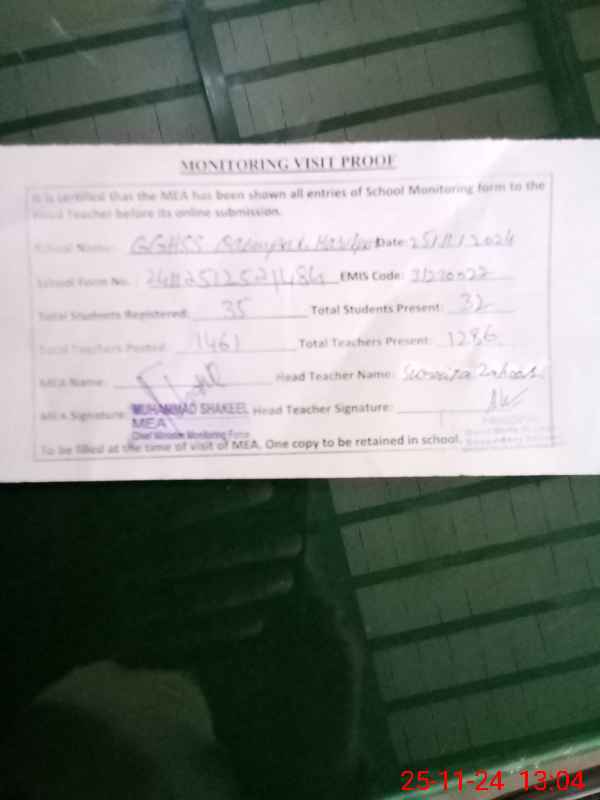 MONITORING VISIT PROOF
It is certified that the MEA has been shown all entries of School Monitoring form to the
Head Teacher before its online submission.
School Name: GGHSS Date: 25/11/2024
School Form No. : EMIS Code: 31270022
Total Students Registered: 35 Total Students Present: 32
Total Teachers Posted: 1461 Total Teachers Present: 1286
MEA Name: Head Teacher Name:
MEA Signature: MUHAMMAD SHAKEEL Head Teacher Signature:
MEA
Chief Minister Monitoring Force
To be filled at the time of visit of MEA. One copy to be retained in school.
25-11-24 13:04